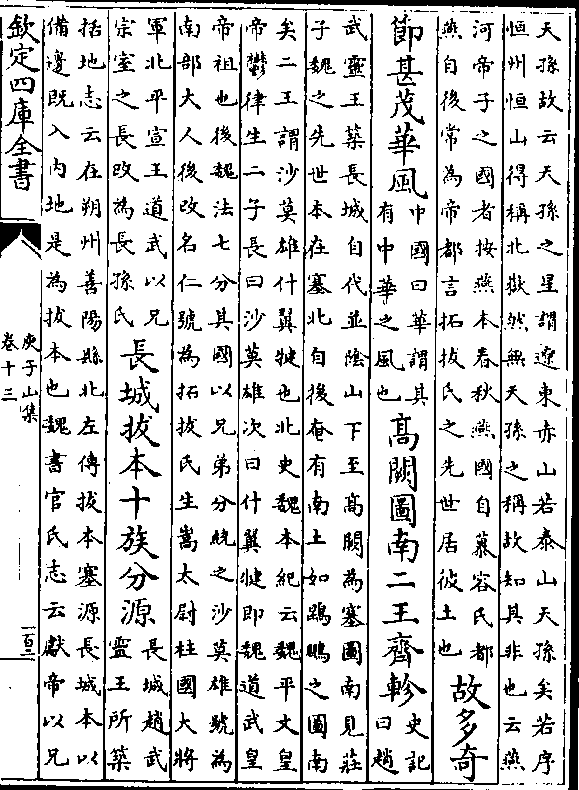 天孫故云天孫之星謂遼東赤山若泰山天孫矣若序
恒州恒山得稱北嶽然無天孫之稱故知其非也云燕
河帝子之國者按燕本春秋燕國自慕容氏都
燕自後常為帝都言拓拔氏之先世居彼土也
故多奇
節甚茂華風
中國曰華謂其
有中華之風也
高闕圖南二王齊軫
史記
曰趙
武靈王築長城自代並陰山下至高闕為塞圖南見莊
子魏之先世本在塞北自後奄有南土如鵾鵬之圖南
矣二王謂沙莫雄什翼犍也北史魏本紀云魏平文皇
帝鬱律生二子長曰沙莫雄次曰什翼犍即魏道武皇
帝祖也後魏法七分其國以兄弟分統之沙莫雄號為
南部大人後改名仁號為拓拔氏生嵩太尉柱國大將
軍北平宣王道武以兄
宗室之長改為長孫氏
長城拔本十族分源
長城趙武
靈王所築
括地志云在朔州善陽縣北左傳拔本塞源長城本以
備邊既入內地是為拔本也魏書官氏志云獻帝以兄
欽定四庫全書
庾子山集
卷十三
一百二